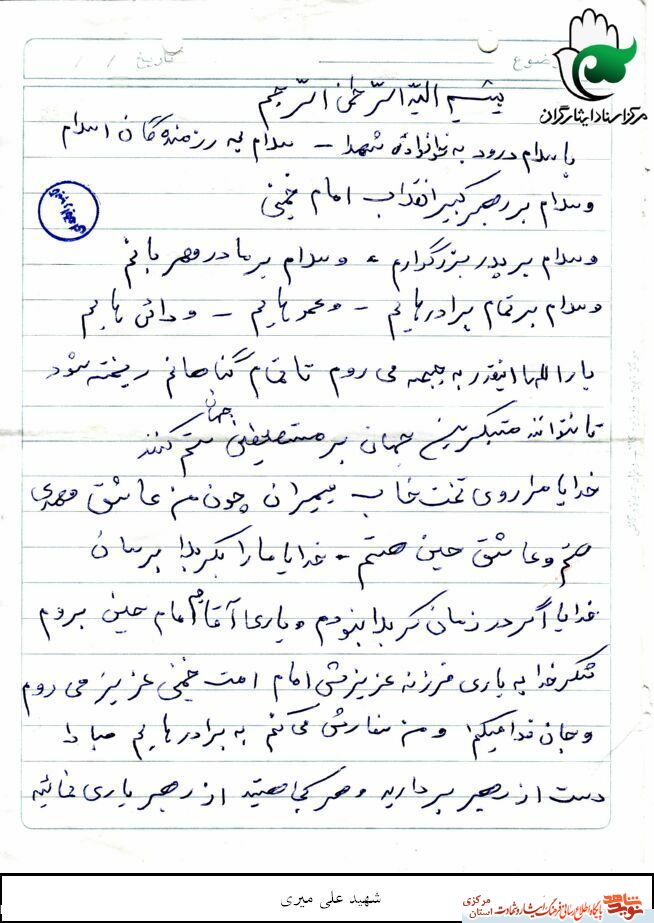 موضوع
تاریخ / /
مرکز اسناد ایثارگران
بسم الله الرحمن الرحیم
با سلام درود به خانواده شهدا - سلام به رزمنده گان اسلام
وسلام بر رهبر کبیر انقلاب امام خمینی
وسلام بر پدر بزرگوارم ، وسلام بر مادر مهربانم
وسلام بر تمام برادرهایم - وعمه هایم - ودائی هایم
بارالها اینقدر به جبهه می روم تا تمام گناهانم ریخته شود
تا نتوانند متکبرین جهان بر مستضعفین جهان ستم کنند
خدایا مرا روی تخت خاب نمیران چون من عاشق مهدی
هستم وعاشق حسین هستم - خدایا ما را بکربلا برسان
خدایا اگر در زمان کربلا نبودم ویاری آقایم امام حسین بروم
شکر خدا به یاری فرزند عزیزش امام امت خمینی عزیز می روم
وجان فدا میکنم ومن سفارش می کنم به برادرهایم مبادا
دست از رهبر بردارید وهر کجا هستید از رهبر یاری نمائید
شهید علی میری
نوید شاهد
مرکزی
استان
پایگاه اطلاع رسانی فرهنگ ایثار و شهادت